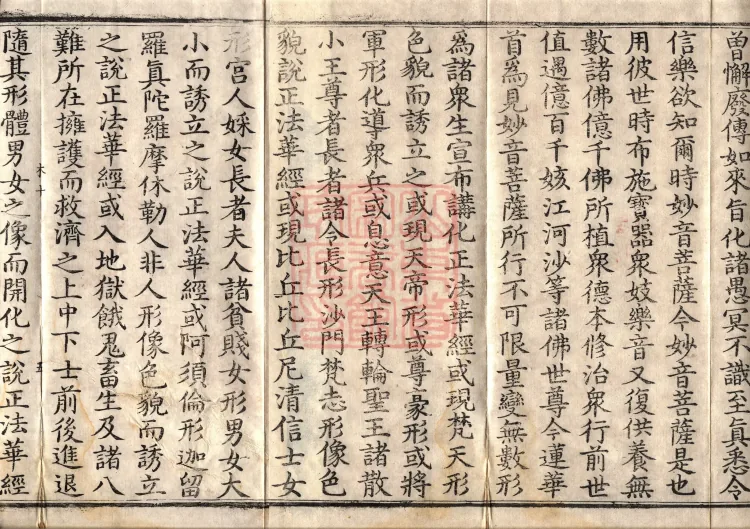 曾懈廢傳如來旨化諸愚冥不識至真悉令
信樂欲知爾時妙音菩薩今妙音菩薩是也
用彼世時布施寶器衆妓樂音又復供養無
數諸佛億千佛所植衆德本修治衆行前世
值遇億百千姟江河沙等諸佛世尊今蓮華
首爲見妙音菩薩所行不可限量變無數形
爲諸衆生宣布講化正法華經或現梵天形
色貌而誘立之或現天帝形或尊豪形或將
軍形化導衆兵或息意天王轉輪聖王諸散
小王尊者長者諸令長形沙門梵志形像色
貌說正法華經或現比丘比丘尼清信士女
形宮人婇女長者夫人諸貧賤女形男女大
小而誘立之說正法華經或阿須倫形迦留
羅眞陀羅摩休勒人非人形像色貌而誘立
之說正法華經或入地獄餓鬼畜生及諸八
難所在擁護而救濟之上中下士前後進退
隨其形體男女之像而開化之說正法華經